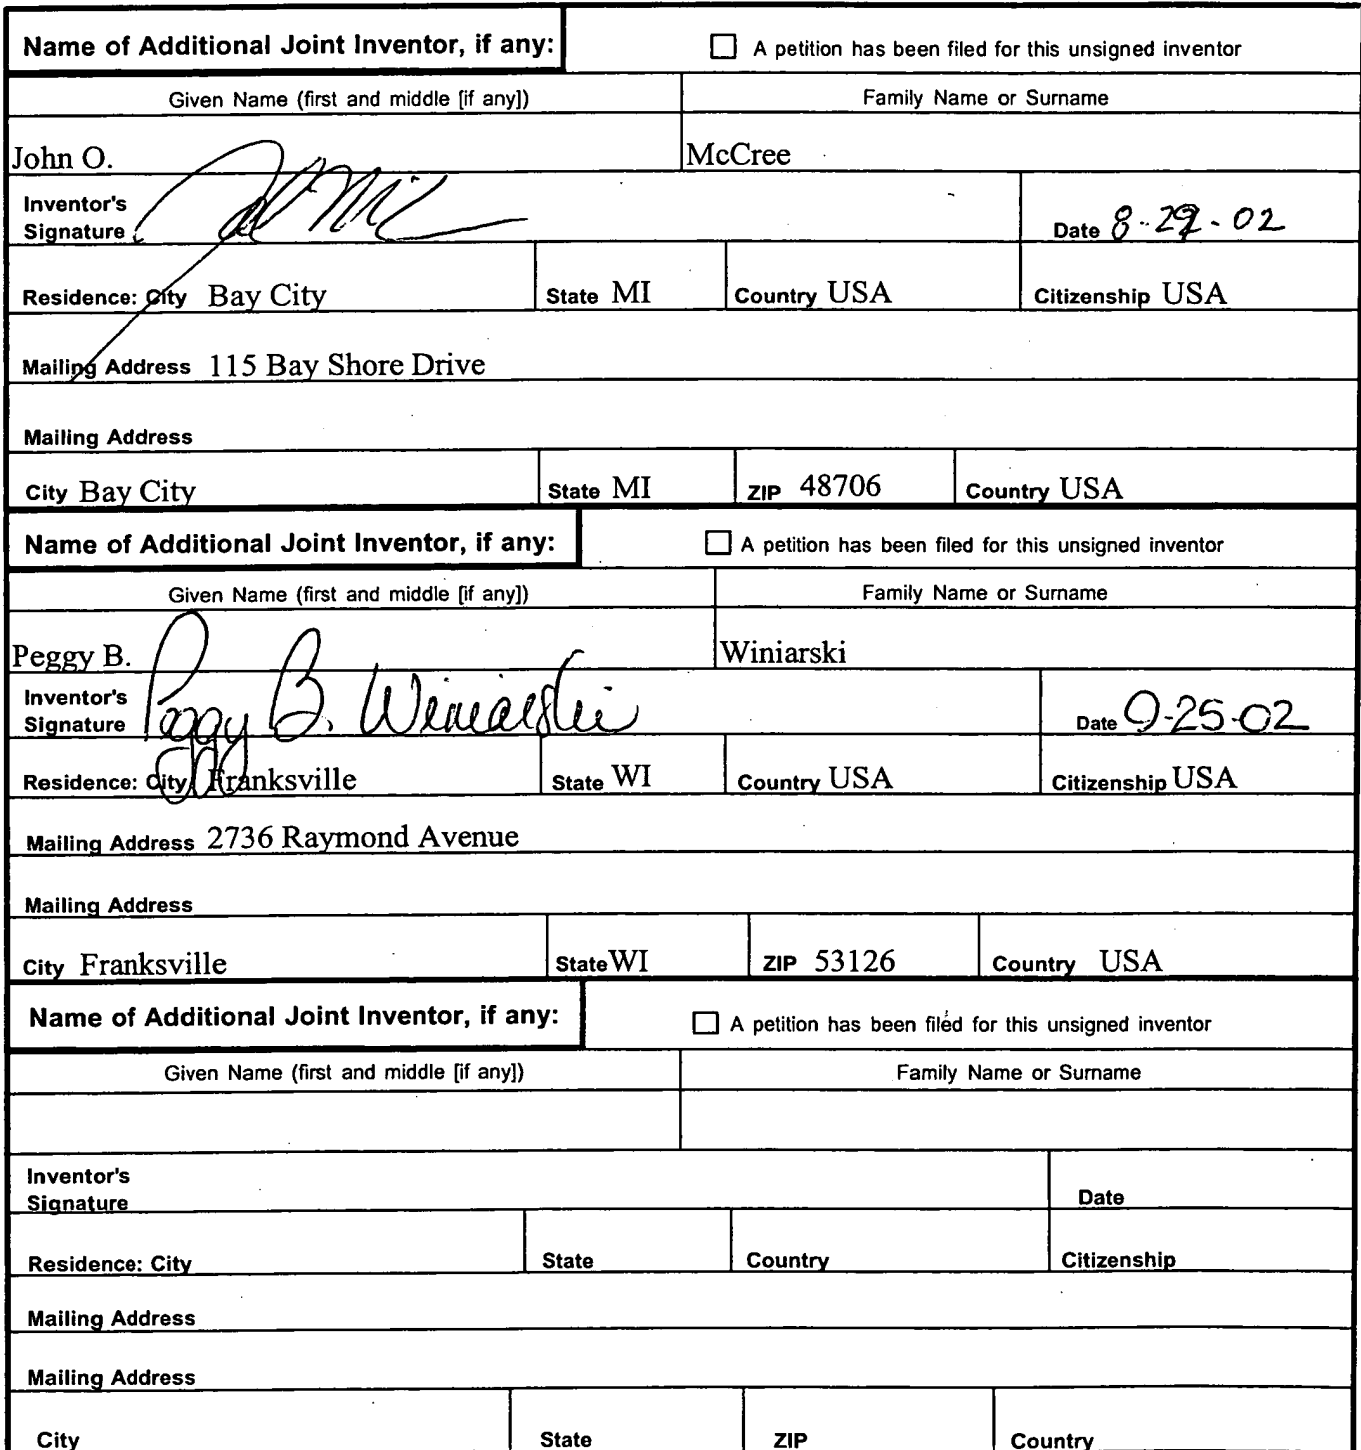 Name of Additional Joint Inventor, if any: A petition has been filed for this unsigned inventor
Given Name (first and middle [if any]) Family Name or Surname
John O. McCree
Inventor's
Signature Date 8-29-02
Residence: City Bay City State MI Country USA Citizenship USA
Mailing Address 115 Bay Shore Drive
Mailing Address
City Bay City State MI ZIP 48706 Country USA
Name of Additional Joint Inventor, if any: A petition has been filed for this unsigned inventor
Given Name (first and middle [if any]) Family Name or Surname
Peggy B. Winiarski
Inventor's
Signature Peggy B. Winiarski Date 9-25-02
Residence: City Franksville State WI Country USA Citizenship USA
Mailing Address 2736 Raymond Avenue
Mailing Address
City Franksville State WI ZIP 53126 Country USA
Name of Additional Joint Inventor, if any: A petition has been filed for this unsigned inventor
Given Name (first and middle [if any]) Family Name or Surname
Inventor's
Signature Date
Residence: City State Country Citizenship
Mailing Address
Mailing Address
City State ZIP Country